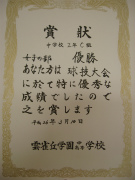 賞状
中学校 2年C組
女子の部 優勝
あなた方は球技大会
に於て特に優秀な
成績でしたので
之を賞します
平成24年3月14日
雲雀丘学園中学校